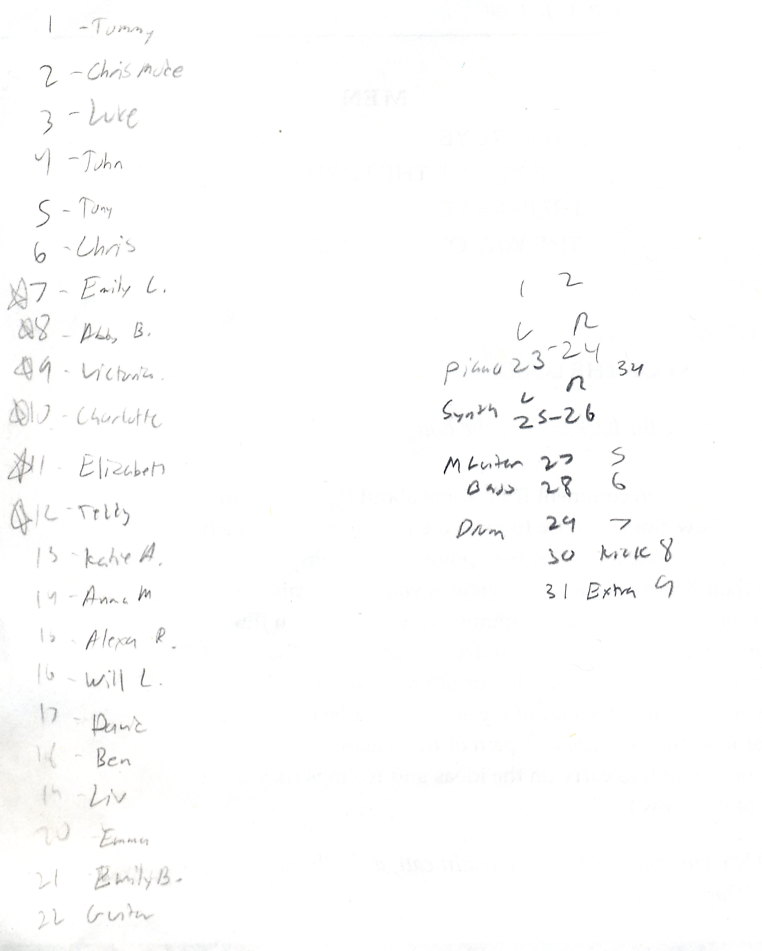 1 - Tommy
2 - Chris Mute
3 - Luke
4 - John
5 - Tony
6 - Chris
7 - Emily C.
8 - Abby B.
9 - Victoria.
10 - Charlotte
11 - Elizabeth
12 - Teddy
13 - Katie A.
14 - Anna M
15 - Alexa R.
16 - Will L.
17 -
18 - Ben
19 - Liv
20 Emma
21 Emily B.
22 Guitar
1 2
L R
Piano 23-24 34
L R
Synth 25-26
M Guitar 27 5
Bass 28 6
Drum 29 7
30 Kick 8
31 Extra 9
MEN